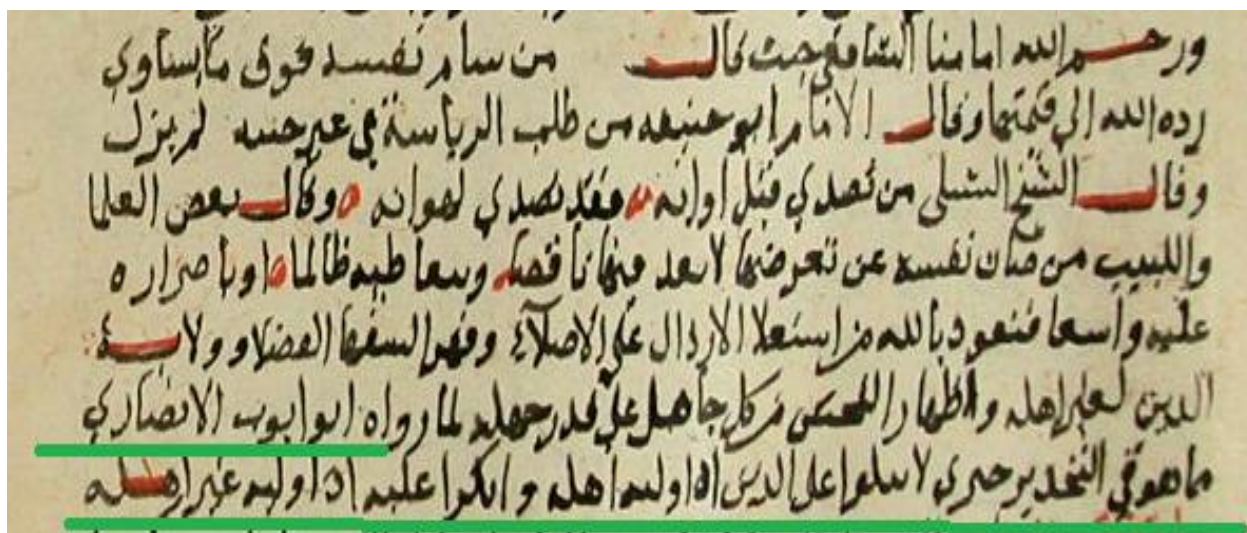 ورحم الله امامنا الشافعي حيث قال من سام نفسه فوق ما يساوي
رده الله الي قيمتها وقال الامام ابو حنيفه من طلب الرياسة في غير حينه لم يزل
وقال الشيخ الشبلي من تصدي قبل اوانه فقد تصدي لهوانه وقال بعض العلما
واللبيب من صان نفسه عن تعرضها لا يعد فيها ناقصا وبتعاطيه ظالما او باصراره
عليه فنعوذ بالله من استعلا الارذال علي الاصلاء وقهر السفها الفضلا وولاية
الدين لغير اهله واظهار من كل جاهل علي قدر جهله لما رواه ابو ايوب الانصاري
ما هو في التحذير حري لا تبكوا علي الدين اذا وليه اهله وابكوا عليه اذا وليه غير اهله